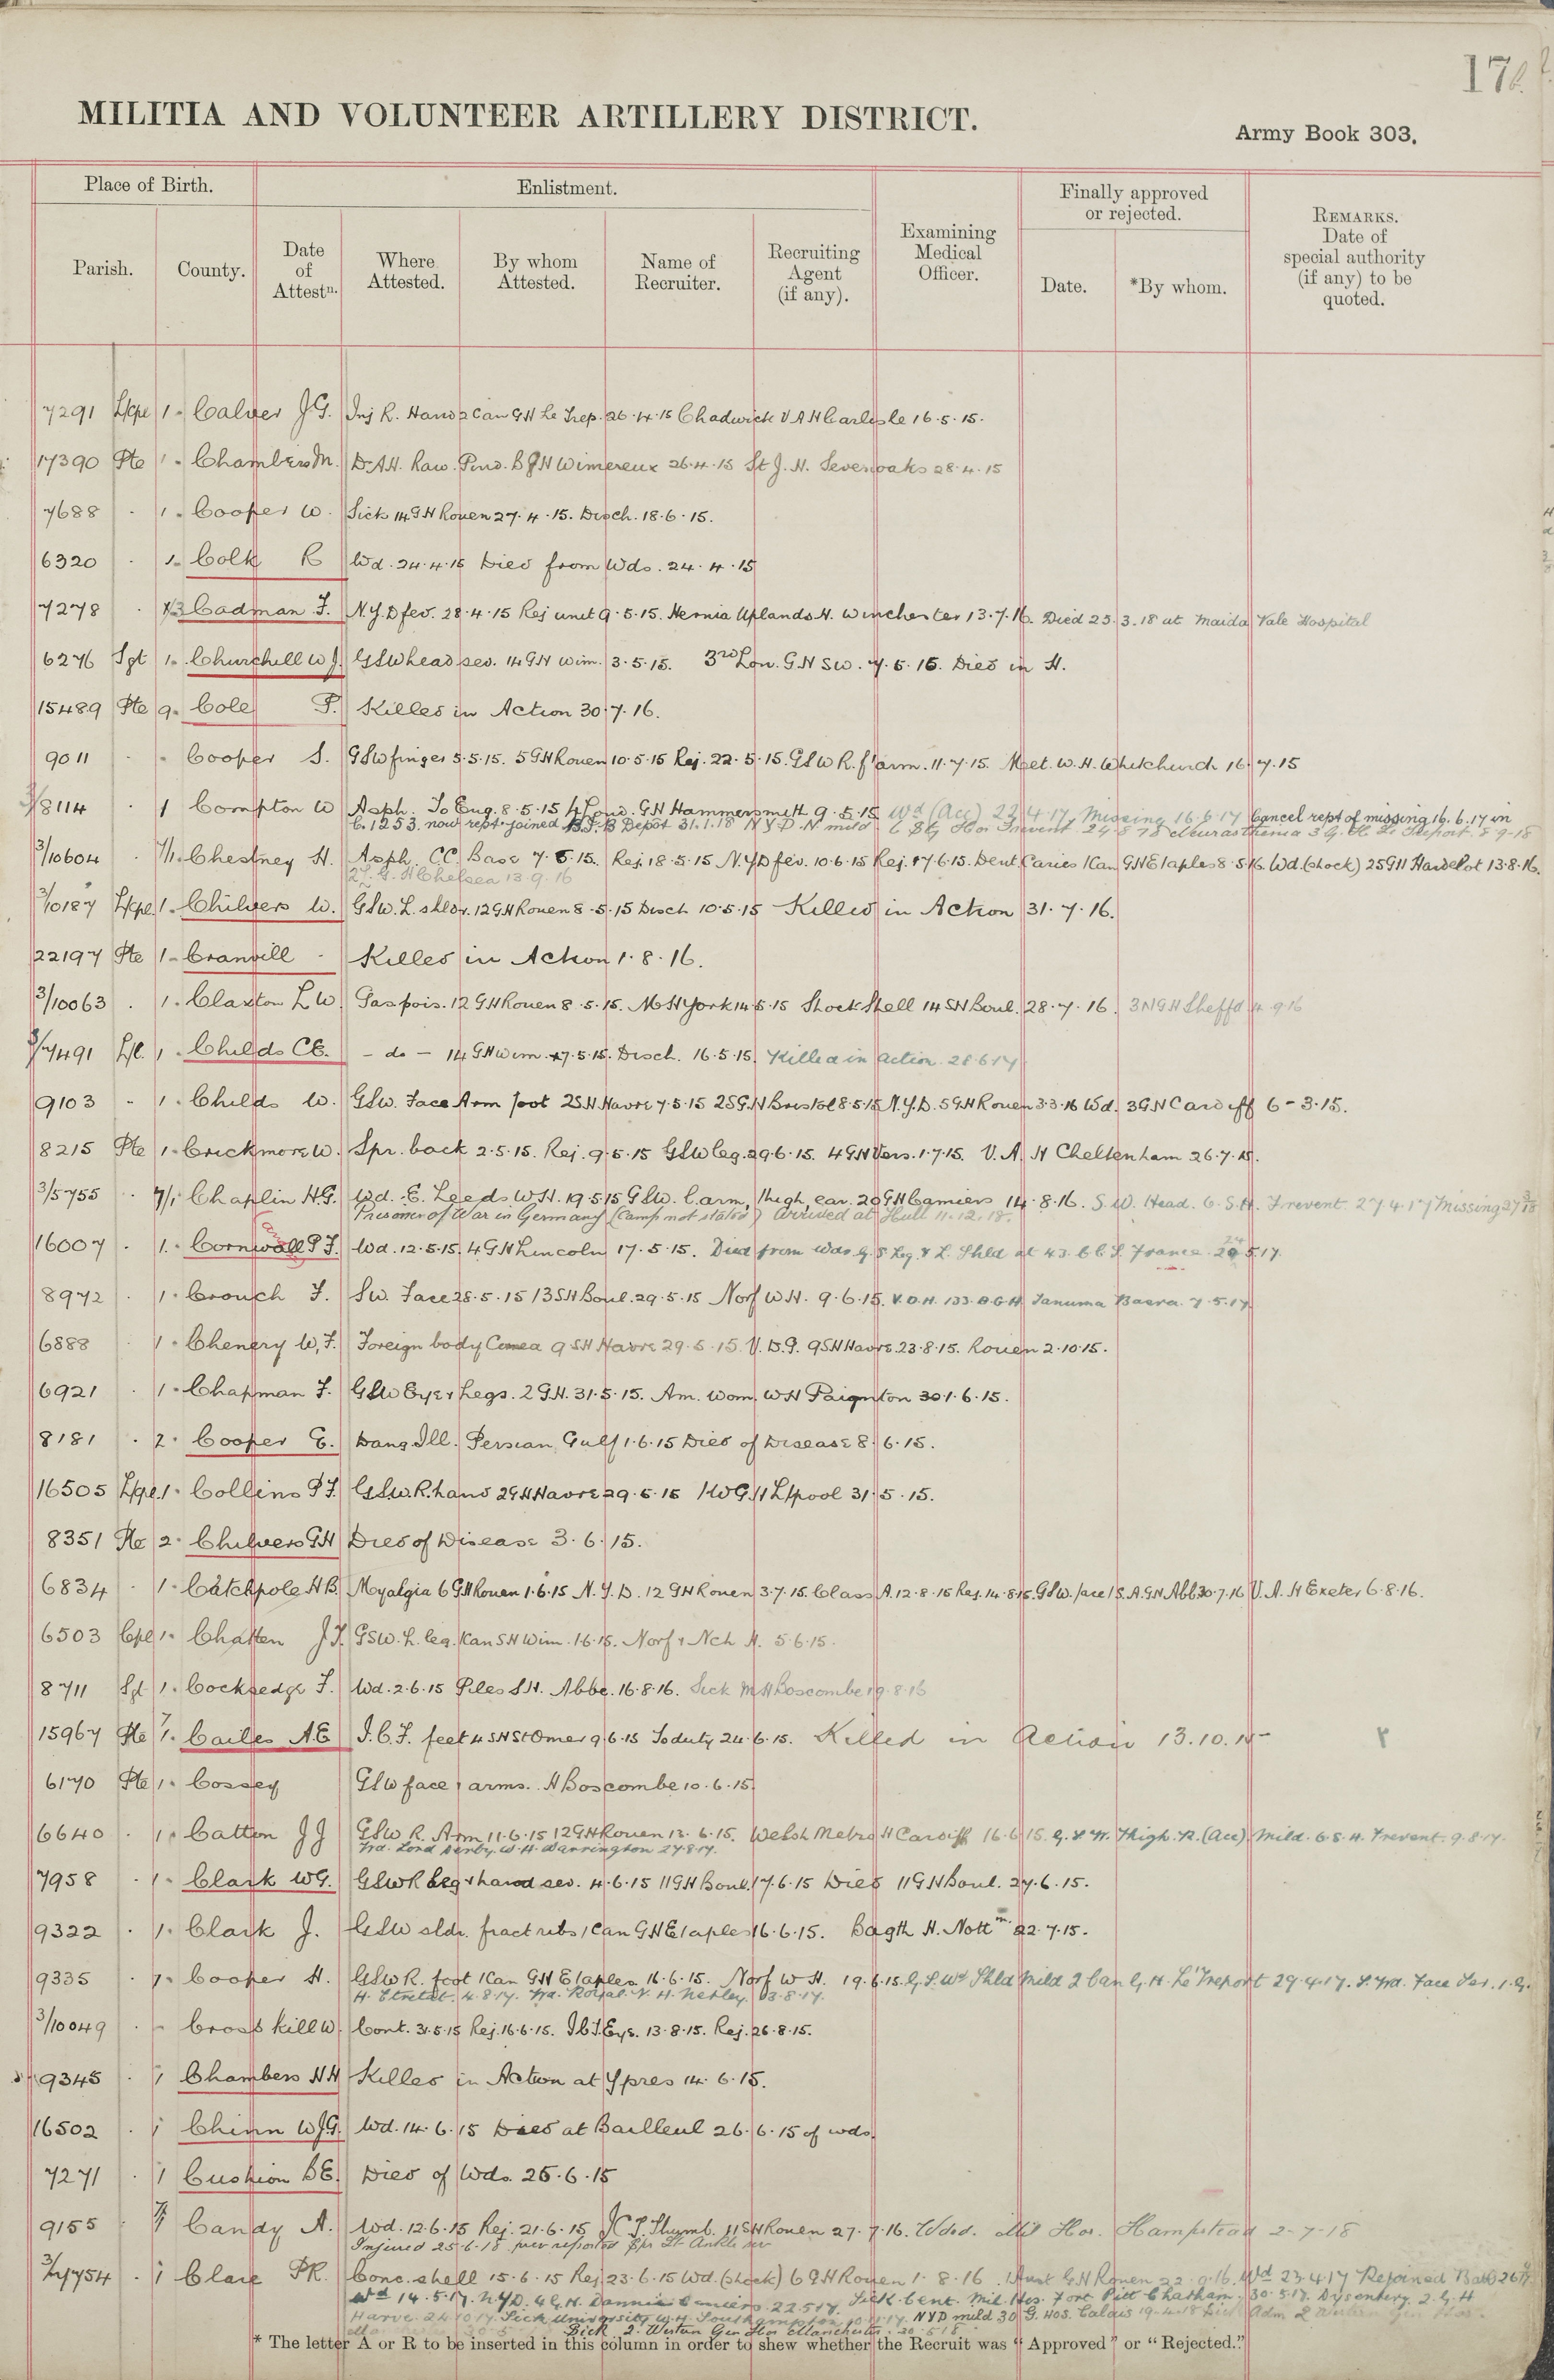 17
MILITIA AND VOLUNTEER ARTILLERY DISTRICT.
Army Book 303.
Place of Birth.
Enlistment.
Finally approved or rejected.
Parish.
County.
Date of Attestn.
Where Attested.
By whom Attested.
Name of Recruiter.
Recruiting Agent (if any).
Examining Medical Officer.
Date.
*By whom.
REMARKS. Date of special authority (if any) to be quoted.
7291 L/cpl 1 . Calver J G. Inj R. Hand 2 Can G H Le Trep. 26.4.15 Chadwick V A H Carlisle 16.5.15.
17390 Pte 1 . Chambers M. D.A.H. Wimereux 26.4.15 St J. H. Sevenoaks 28.4.15
7688 . 1 . Cooper W. Sick 14 G H Rouen 27.4.15. Disch. 18.6.15.
6320 . 1. Colk R Wd. 24.4.15 Died from Wds. 24.4.15
7278 . 1/3 Cadman F. N.Y.D fev. 28.4.15 Rej unit 9.5.15. Hernia Uplands H. Winchester 13.7.16. Died 23.3.18 at Maida Vale Hospital
6276 Sgt 1. Churchill W J. GSW head sev. 14 G H Wim. 3.5.15. 3rd Lon. G H SW. 7.5.15. Died in H.
15489 Pte 9. Cole P. Killed in Action 30.7.16.
9011 . . Cooper S. GSW finger 5.5.15. 5 G H Rouen 10.5.15 Rej. 22.5.15. GSW R. f'arm. 11.7.15. Met. W. H. Whitchurch 16.7.15
3/8114 . 1 Compton W Asph. To Eng. 8.5.15 4 Lond. G H Hammersmith 9.5.15 Wd (Acc) 22.4.17. Missing 16.6.17 Cancel rept of missing 16.6.17 in
C.1253. now rept. joined B Depot 31.1.18 N Y D. N. mild Hos Trevent 24.8.18 Neurasthenia 3 G. H. Le Treport 8 9-18
3/10604 . 7/1. Chestney H. Asph. C.C. Base 7.5.15. Rej 18.5.15 N.Y.D fev. 10.6.15 Rej. 17.6.15. Dent. Caries 1 Can G H Etaples 8.5.16. Wd. (shock) 25 G H Hardelot 13.8.16.
Chelsea 13.9.16
3/10187 L/cpl 1. Chilvers W. GSW. L. shldr. 12 G H Rouen 8.5.15 Disch 10.5.15 Killed in Action 31.7.16.
22197 Pte 1. Cranvill - Killed in Action 1.8.16.
3/10063 . 1. Claxton L W. Gas pois. 12 G H Rouen 8.5.15. M H York 14.5.15 Shock Shell 14 S H Boul. 28.7.16. 3 N G H Sheffd 4.9.16
3/7491 L/c. 1. Childs C E. - do - 14 G H Wim. 7.5.15. Disch. 16.5.15. Killed in action. 28.6.17
9103 - 1. Childs W. GSW. Face Arm foot 2 S H Havre 7.5.15 2 S G. H Bristol 8.5.15 N.Y.D. 5 G H Rouen 3.3.16 Wd. 3 G H Cardiff 6-3.15.
8215 Pte 1. Crickmore W. Spr. back 2.5.15. Rej. 9.5.15 GSW leg. 29.6.15. 4 G H Vers. 1.7.15. V. A. H Cheltenham 26.7.15.
3/5755 . 7/1 Chaplin H.G. Wd. E. Leeds W H. 19.5.15 GSW. C. arm, thigh, ear. 20 G H Camiers 14.8.16. S. W. Head. 6. S. H. Frevent. 27.4.17 Missing
Prisoner of War in Germany (Camp not stated) Arrived at Hull 11.12.18.
16007 . 1. Cornwall P J. Wd. 12.5.15. 4 G H Lincoln 17.5.15. Died from Wds G. S Leg. & L. Shld at 43. C C S. France. 5.17.
8972 . 1. Crouch F. SW. Face 28.5.15 13 S H Boul. 29.5.15 Norf W H. 9.6.15. V.D.H. 133. B.G.H Tanuma Basra. 7.5.17
6888 1. Chenery W, F. Foreign body Cornea 9 S H Havre 29.5.15. V. D. G. 9 S H Havre. 23.8.15. Rouen 2.10.15.
6921 . 1. Chapman F. GSW Eye & Legs. 2 G.H. 31.5.15. Am. Wom. W H Paignton 30.6.15.
8181 . 2. Cooper E. Dang. Ill. Persian Gulf 1.6.15 Died of Disease 8.6.15.
16505 L/cpl. 1. Collins P J. GSW. R. hand 2 G H Havre 29.5.15 1 W G H L'pool 31.5.15.
8351 Pte 2. Chilvers G H Died of Disease 3.6.15.
6834 . 1. Catchpole H B. Myalgia 6 G H Rouen 1.6.15 N.Y.D. 12 G H Rouen 3.7.15. Class A. 12.8.15 Rej. 14.8.15. GSW. face 1 S. A. G. H Abb. 30.7.16 V. A. H Exeter 6.8.16.
6503 Cpl 1. Chatten J T. GSW. L. leg. 1 Can S H Wim. 1.6.15. Norf & Nch H. 5.6.15.
8711 Sgt 1. Cocksedge F. Wd. 2.6.15 Piles S H. Abbe. 16.8.16. Sick M H Boscombe 19.8.16
15967 Pte 7/1. Cailes A E I.C.T. feet 4 S H St Omer 9.6.15 To duty 24.6.15. Killed in Action 13.10.15
6170 Pte 1. Cossey GSW face & arms. H Boscombe 10.6.15.
6640 . 1. Catton J J GSW R. Arm 11.6.15 12 G H Rouen 13.6.15. Welsh Metro H Cardiff 16.6.15. G. S. W. Thigh. R. (Acc). Mild. 6. S. H. Frevent. 9.8.17.
Tra. Lord Derby. W. H. Warrington 27.8.17.
7958 . 1. Clark W G. GSW R Leg & hand sev. 4.6.15 11 G H Boul. 17.6.15 Died 11 G H Boul. 27.6.15.
9322 . 1. Clark J. GSW sldr. fract ribs 1 Can G H Etaples 16.6.15. Bagth H. Nottm 22.7.15.
9335 . 1. Cooper H. GSW R. foot 1 Can G H Etaples 16.6.15. Norf W H. 19.6.15. G. S. Wd Shld Mild 2 Can G. H. Le Treport 29.4.17. S. Wd. Face Ser. 1. G.
H. Etretat. 4.8.17. Tra. Royal. V. H. Netley. 13.8.17.
3/10049 . - Crosskill W. Cont. 31.5.15 Rej. 16.6.15. I C T. Eys. 13.8.15. Rej. 26.8.15.
9345 . 1 Chambers H H Killed in Action at Ypres 14.6.15.
16502 . 1 Chinn W J G. Wd. 14.6.15 Died at Bailleul 26.6.15 of wds.
7271 . 1 Cushion B E. Died of Wds. 25.6.15
9155 . 7/1 Candy A. Wd. 12.6.15 Rej. 21.6.15 I C T. Thumb. 11 S H Rouen 27.7.16. Wded. Mil Hos. Hampstead 2-7-18
Injured 25.6.18 prev reported Spr Lt Ankle sev
3/7754 . 1 Clare P R. Conc. shell 15.6.15 Rej 23.6.15 Wd. (shock) 6 G H Rouen 1.8.16. Aust G H Rouen 22.9.16. Wd 23.4.17 Rejoined Batt
Wd 14.5.17. N.Y.D. 4 G. H. Dannes Camiers. 22.5.17. Sick Cent. Mil. Hos. Fort Pitt Chatham. 30.5.17. Dysentery. 2. G. H
Havre 24.10.17. Sick University W. H. Southampton 10.11.17. NYD mild 30 G. Hos. Calais 19-4-18
Sick 2. Western Gen Hos Manchester. 30.5.18
* The letter A or R to be inserted in this column in order to shew whether the Recruit was "Approved" or "Rejected."